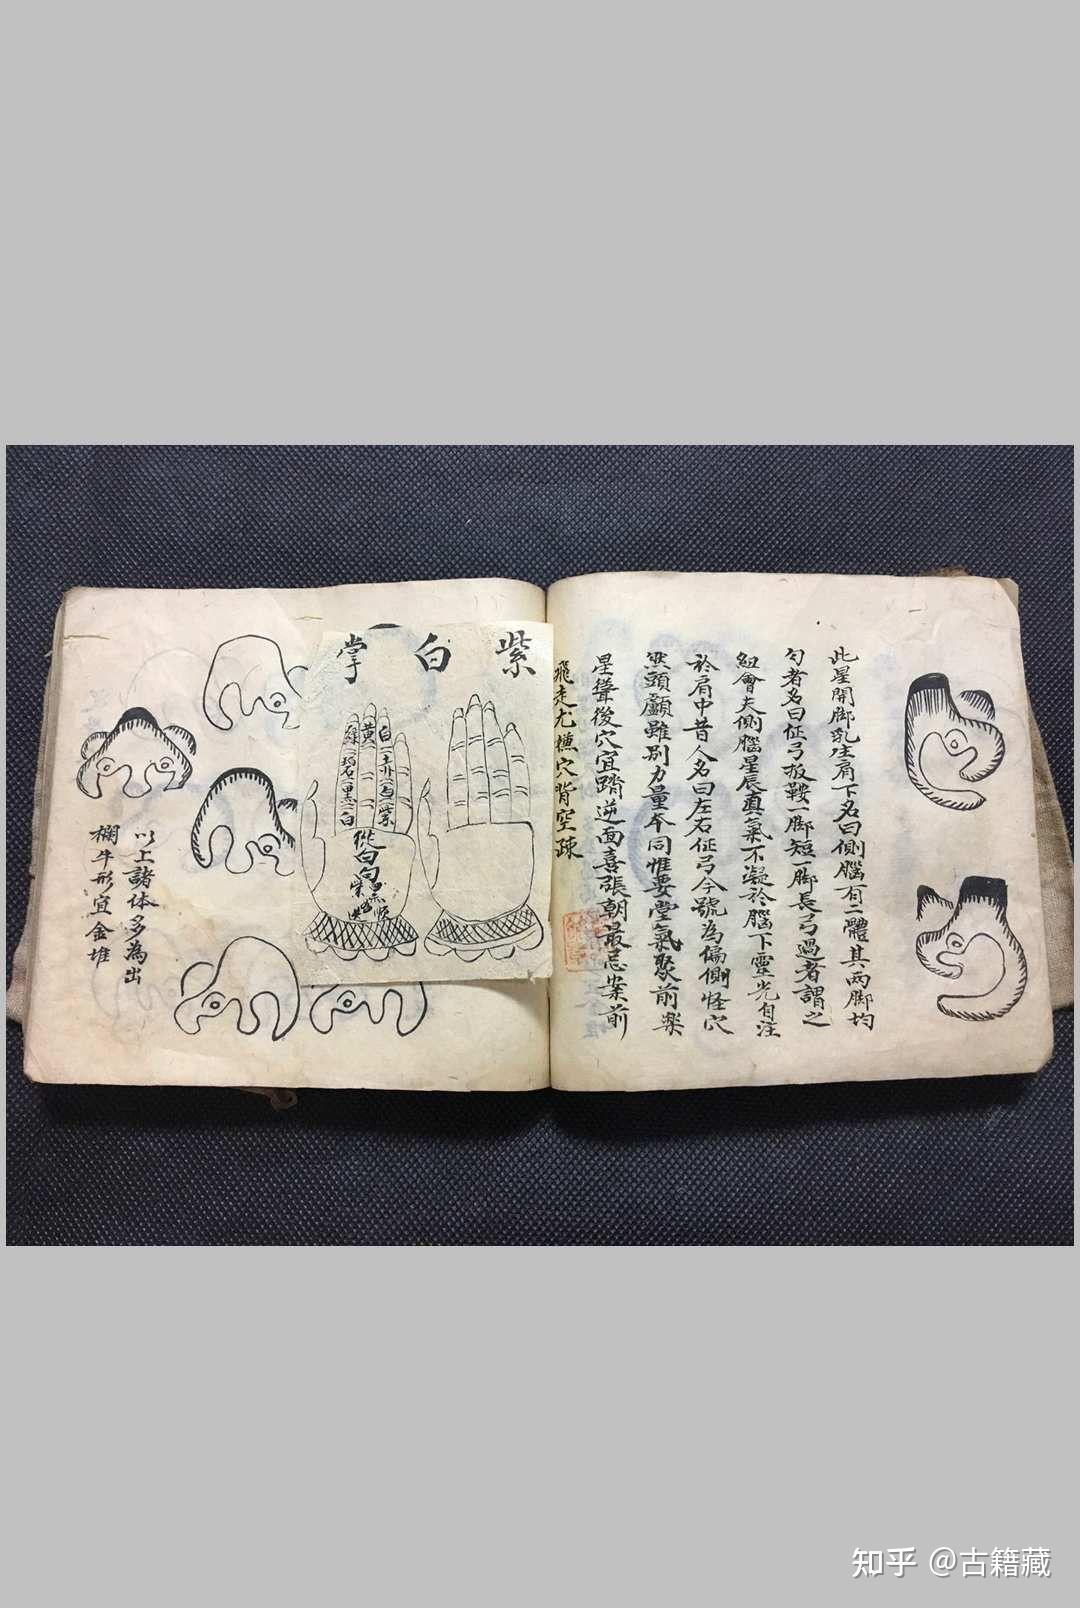 此星開脚乳生肩下名曰側腦有二體其两脚均
勻者名曰仾弓扳鞍一脚短一脚長弓過者謂之
紐會夫側腦星辰真氣不凝於腦下靈光自注
於肩中昔人名曰左右仾弓今號為偏側怪穴
然頭顱雖别力量本同惟要堂氣聚前楽
星聳後穴宜踏逆面喜張朝最忌案前
飛走尤 穴背空疎
紫白掌
白
黄
綠
碧
黑
白
紫
以上諸体多為出
欄牛形宜金堆
知乎 @古籍藏